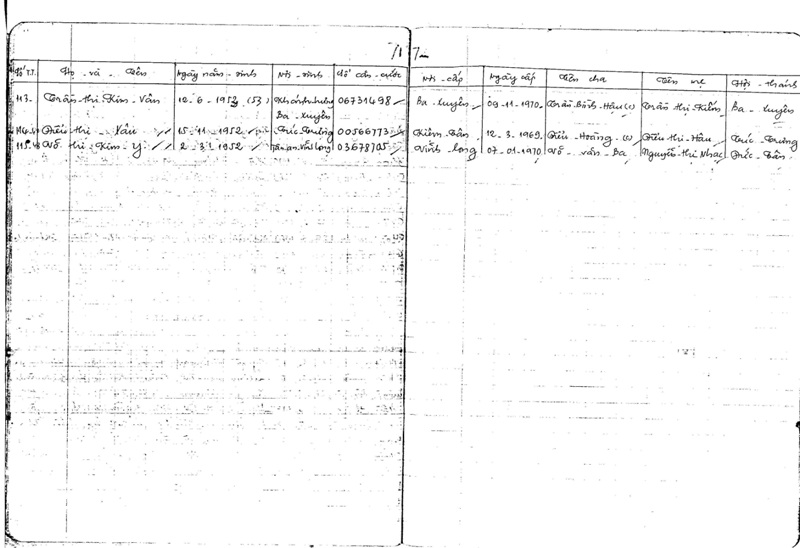 /1 7
Số T.T. Họ - và - Tên Ngày năm - sinh Nơi - sinh Số căn - cước Nơi - cấp Ngày cấp Tên cha Tên mẹ Hội - thánh
113. Trần thị Kim - Vân 10 - 6 - 1952 (53) Khánh hưng 06731498 Ba - Xuyên 09 - 11 - 1970 Trần Bỉnh - Hậu (s) Trần thị - Kiểm Ba - Xuyên
Ba - Xuyên
114. Điểu thị - Vâu 15 - 11 - 1952 Trúc Trưng 00566773 Kiệm Tân 12 - 3 - 1969. Điểu - Hoàng - (s) Điểu thị - Hâu Trúc - Trưng
115. Võ thị - Kim - Y 2 - 3 - 1952 Tân an Vĩnh long 03678705 Vĩnh - long 07 - 01 - 1970 Võ - văn - Ba Nguyễn thị Nhạc Trúc - Tân